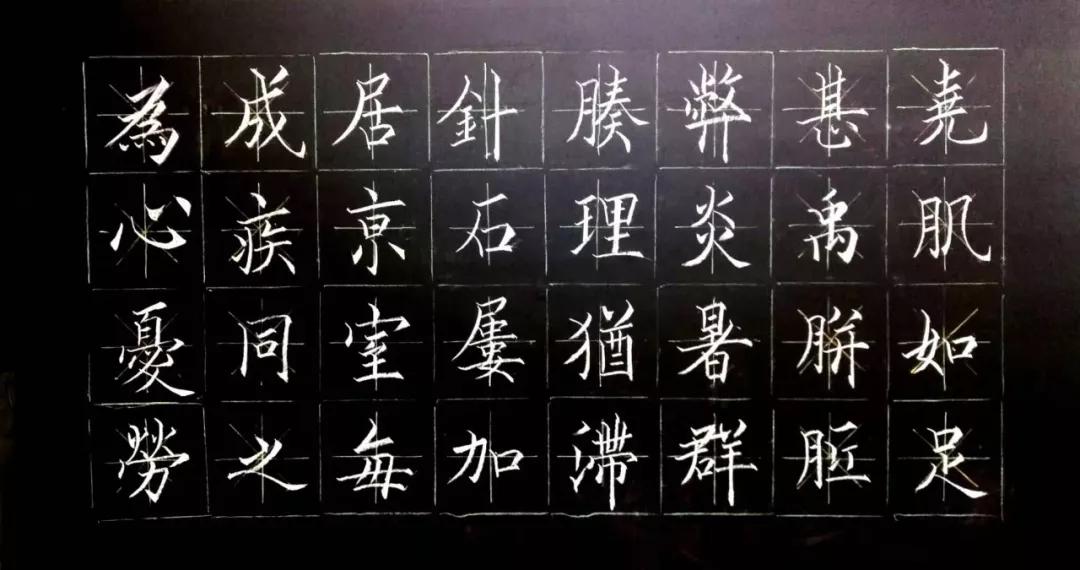 堯肌如足
甚禹胼胝
弊炎暑群
腠理猶滯
針石屢加
居亰室每
成疾同之
為心憂勞